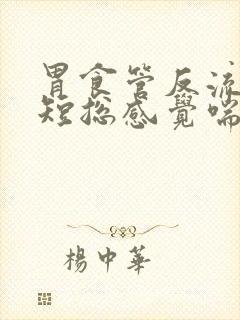 胃食管反流
短总感覺喘
楊中華